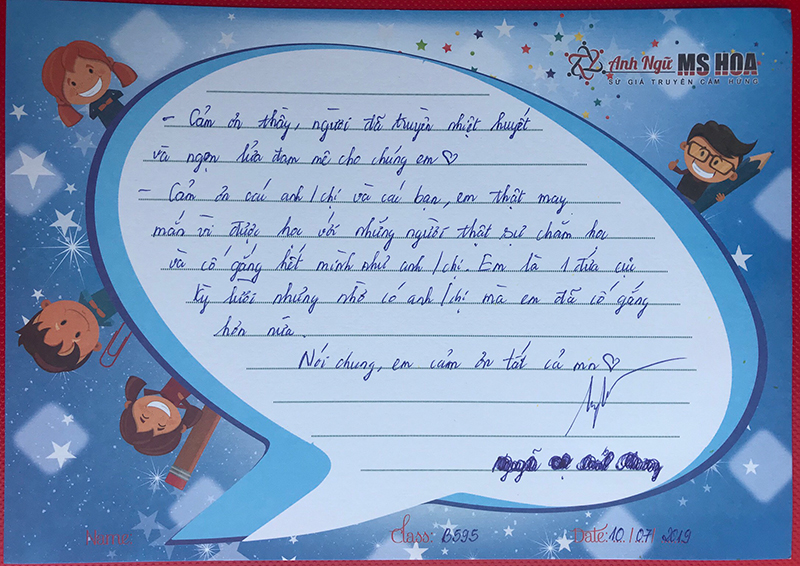 Anh Ngữ MS HOA
SỨ GIẢ TRUYỀN CẢM HỨNG
- Cảm ơn thầy, người đã truyền nhiệt huyết
và ngọn lửa đam mê cho chúng em ♡
- Cảm ơn các anh/chị và các bạn, em thật may
mắn vì được học với những người thật sự chăm học
và cố gắng hết mình như anh/chị. Em là 1 đứa cực
kỳ lười nhưng nhờ có anh/chị mà em đã cố gắng
hơn nữa.
Nói chung, em cảm ơn tất cả mn ♡
Name:
Class: B595
Date: 10./07/2019